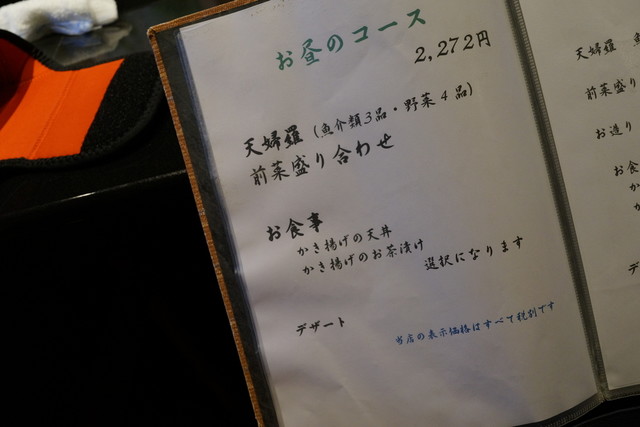 お昼のコース
2,272円
天婦羅（魚介類3品・野菜4品）
前菜盛り合わせ
お食事
かき揚げの天丼
かき揚げのお茶漬け
選択になります
デザート
当店の表示価格はすべて税別です
天婦羅
前菜盛り
お造り
お食